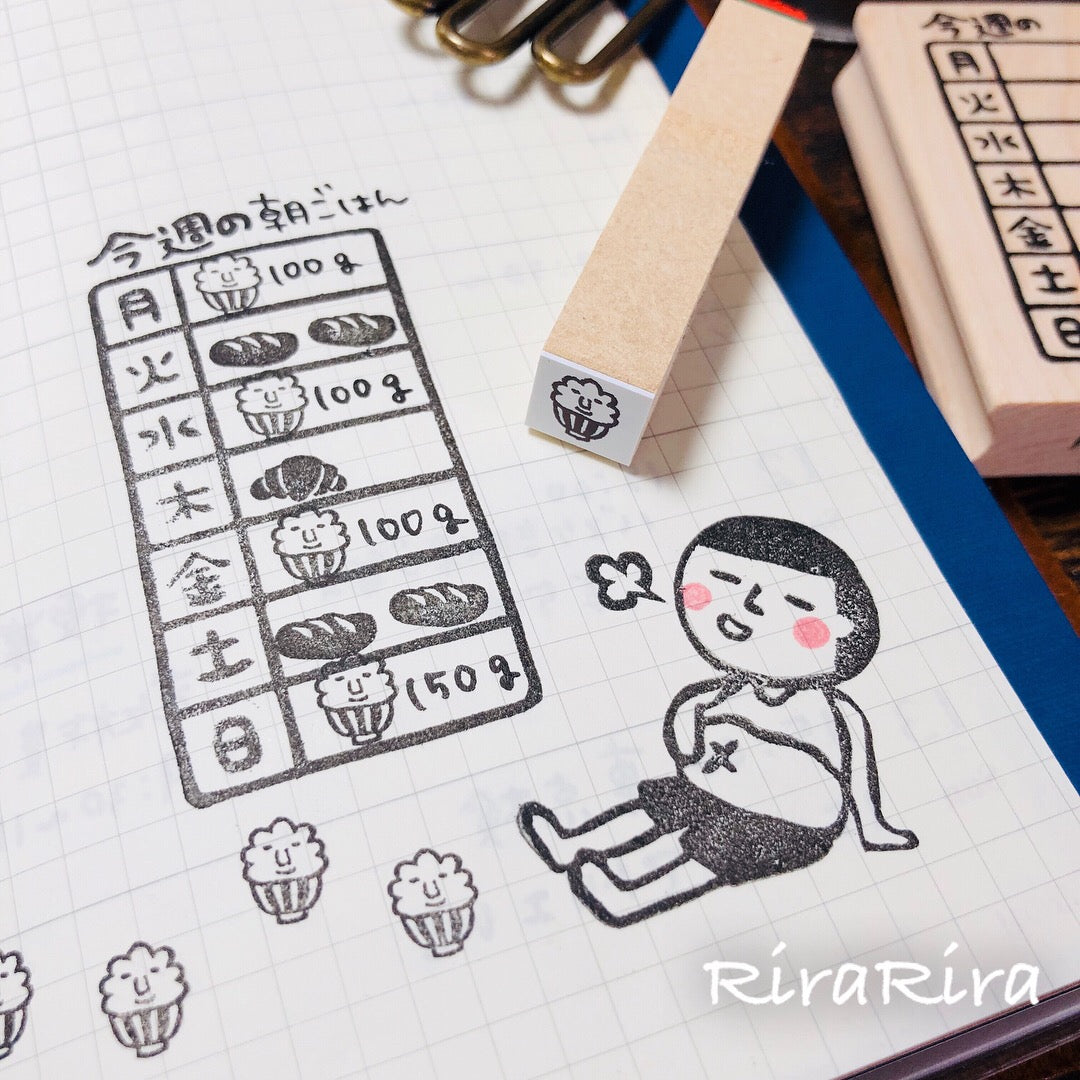 今週の朝ごはん
月 100g
火
水 100g
木
金 100g
土
日 150g
今週の
月
火
水
木
金
土
日
RiraRira